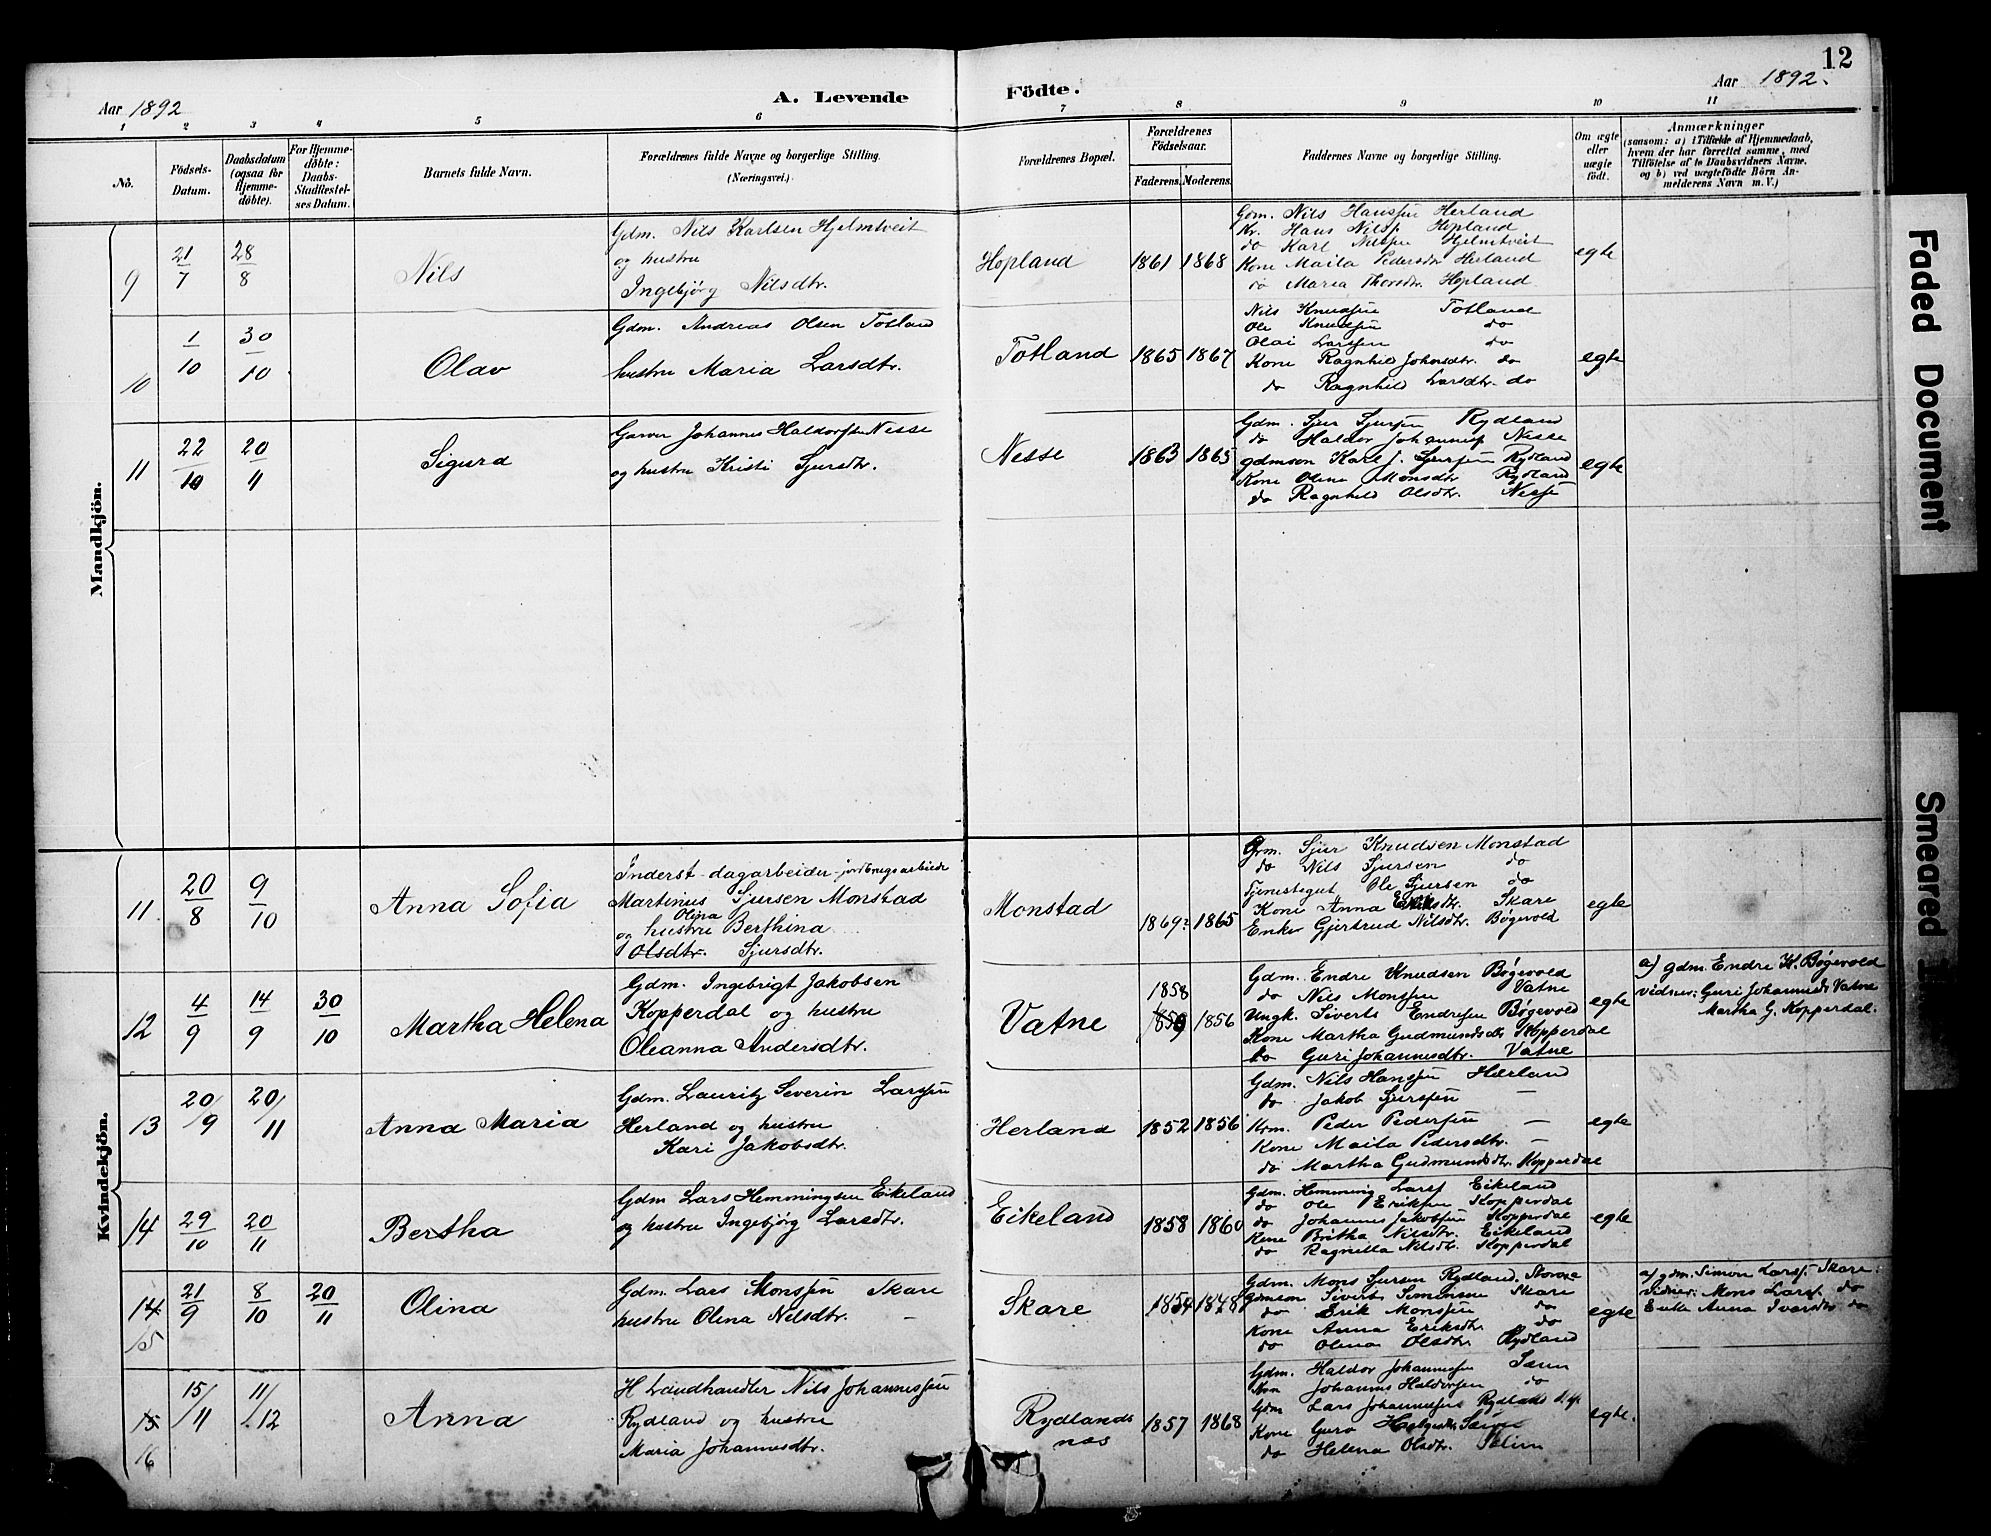 12
Aar 1892
A. Levende Födte.
Aar 1892.
1 2 3 4 5 6 7 8 9 10 11
No.
Födsels-
Datum.
Daabsdatum
(ogsaa for
Hjemme-
döbte).
For Hjemme-
döbte:
Daabs-
Stadfæstel-
ses Datum.
Barnets fulde Navn.
Forældrenes fulde Navne og borgerlige Stilling.
(Næringsvei.)
Forældrenes Bopæl.
Forældrenes
Födselsaar.
Faderens. Moderens.
Faddernes Navne og borgerlige Stilling.
Om ægte
eller
uægte
født.
Anmærkninger
(saasom: a) i Tilfælde af Hjemmedaab,
hvem der har forrettet samme, med
Tilföielse af to Daabsvidners Navne.
og b) ved uægtefödte Börn An-
melderens Navn m. V.)
Mandkjön.
9
21/7
28/8
Nils
Gdm. Nils Karlsen Hjelmtveit
og hustru
Ingebjørg Nilsdtr.
Hopland
1861 1868
Gdm. Nils Hanssen Herland
Kr. Hans Nilss. Hopland
do Karl Nilssen Hjelmtveit
Kone Maila Pedersdtr Herland
do Maria Thorsdtr. Hopland
egte
10
1/10
30/10
Olav
Gdm. Andreas Olsen Totland
hustru Maria Larsdtr.
Totland
1865 1867
Nils Knudsen Totland
Ole Knudsen do
Olai Larssen do
Kone Ragnhild Johnsdtr. do
do Ragnhild Larsdtr. do
egte
11
22/10
20/11
Sigurd
Garver Johannes Haldorssen Nesse
og hustru Kristi Sjursdtr.
Nesse
1863 1865
Gdm. Sjur Sjursen Rydland
do Haldor Johanness Nesse
gdmsøn Karl J. Sjursen Rydland
Kone Oline Monsdtr Rydland
do Ragnhild Olsdtr. Nesse
egte
Kvindekjön.
11
20/8
9/10
Anna Sofia
Inderst-dagarbeider-jordbrugsarbeide
Martinus Sjursen Monstad
Olina
og hustru Berthina
Olsdtr. Sjursdtr.
Monstad
1869? 1865
Grm. Sjur Knudsen Monstad
do Nils Sjursen do
Tjenestegut Ole Sjursen do
Kone Anna Skare
Enke Gjertrud Nilsdtr. Bøgevold
egte
12
4/9
14/9
30/10
Martha Helena
Gdm. Ingebrigt Jakobsen
Kopperdal og hustru
Oleanna Andersdtr.
Vatne
1858
1859 1856
Gdm. Endre Knudsen Bøgevold
do Nils Monssen Vatne
Ungk. Siverts Endresen Bøgevold
Kone Martha Gudmundsdtr Kopperdal
do Guri Johannesdtr. Vatne
egte
a) gdm. Endre K. Bøgevold
vidner: Guri Johannesdr Vatne
Martha G. Kopperdal.
13
20/9
20/11
Anna Maria
Gdm. Lauritz Severin Larssen
Herland og hustru
Kari Jakobsdtr.
Herland
1852 1856
Gdm. Nils Hanssen Hærland
do Jakob Sjurssen —
Krm. Peder Pedersen —
Kone Maila Pedersdtr. —
do Martha Gudmundsdtr. Kopperdal
egte
14
29/10
20/11
Bertha
Gdm Lars Hemmingsen Eikeland
og hustru Ingebjørg Larsdtr.
Eikeland
1858 1860
Gdm. Hemming Larss Eikeland
do Ole Eriksen Kopperdal
do Johannes Jakobsen Kopperdal
Kone Britha Nilsdtr. Eikeland
do Ragnilla Nilsdtr. Kopperdal
egte
14
15
21/9
8/10
20/11
Olina
Gdm. Lars Monssen Skare
hustru Olina Nilsdtr. —
Skare
1854 1848
Gdm. Mons Sjursen Rydland.
Gdmsøn Sivert Simonsen Skare
do Erik Monssen do
Kone Anna Eriksdtr. do
do Olina Olsdtr. Rydland
egte
a) gdm. Simon Larss. Skare
vidner: Mons Larss. do
Enke Anna Ivarsdtr do
15
16
15/11
11/12
Anna
H Landhandler Nils Johannessen
Rydland og hustru
Maria Johannesdtr.
Rydlands
nes
1857 1868
Gdm. Haldor Johannessen
Johannes Haldorsen do
Gdm Lars Johannessen Rydland
Kone Guro
do Helena Olsdtr.
egte.
Faded Document
Smeared